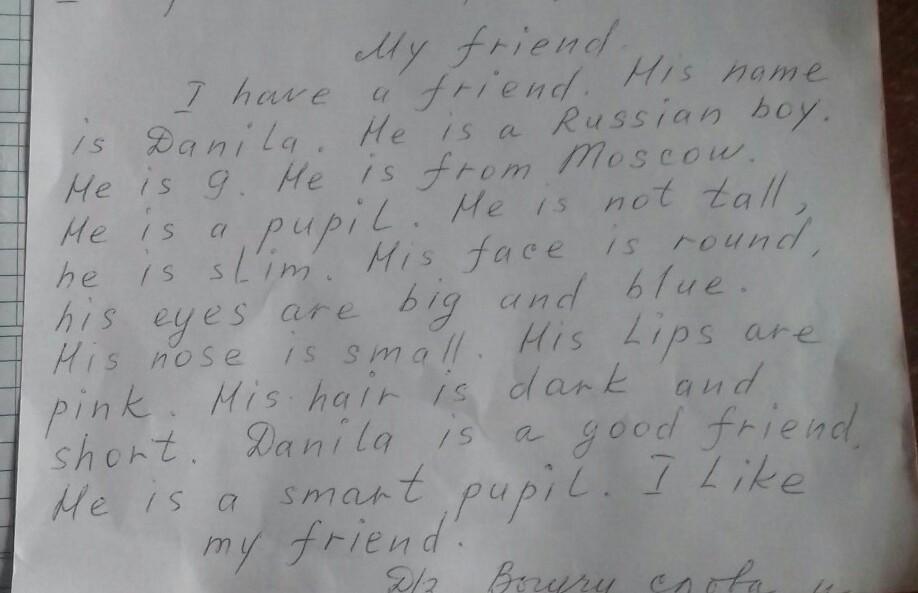 My friend.
I have a friend. His name
is Danila. He is a Russian boy.
He is 9. He is from Moscow.
He is a pupil. He is not tall,
he is slim. His face is round,
his eyes are big and blue.
His nose is small. His Lips are
pink. His hair is dark and
short. Danila is a good friend.
He is a smart pupil. I Like
my friend.
Д/з